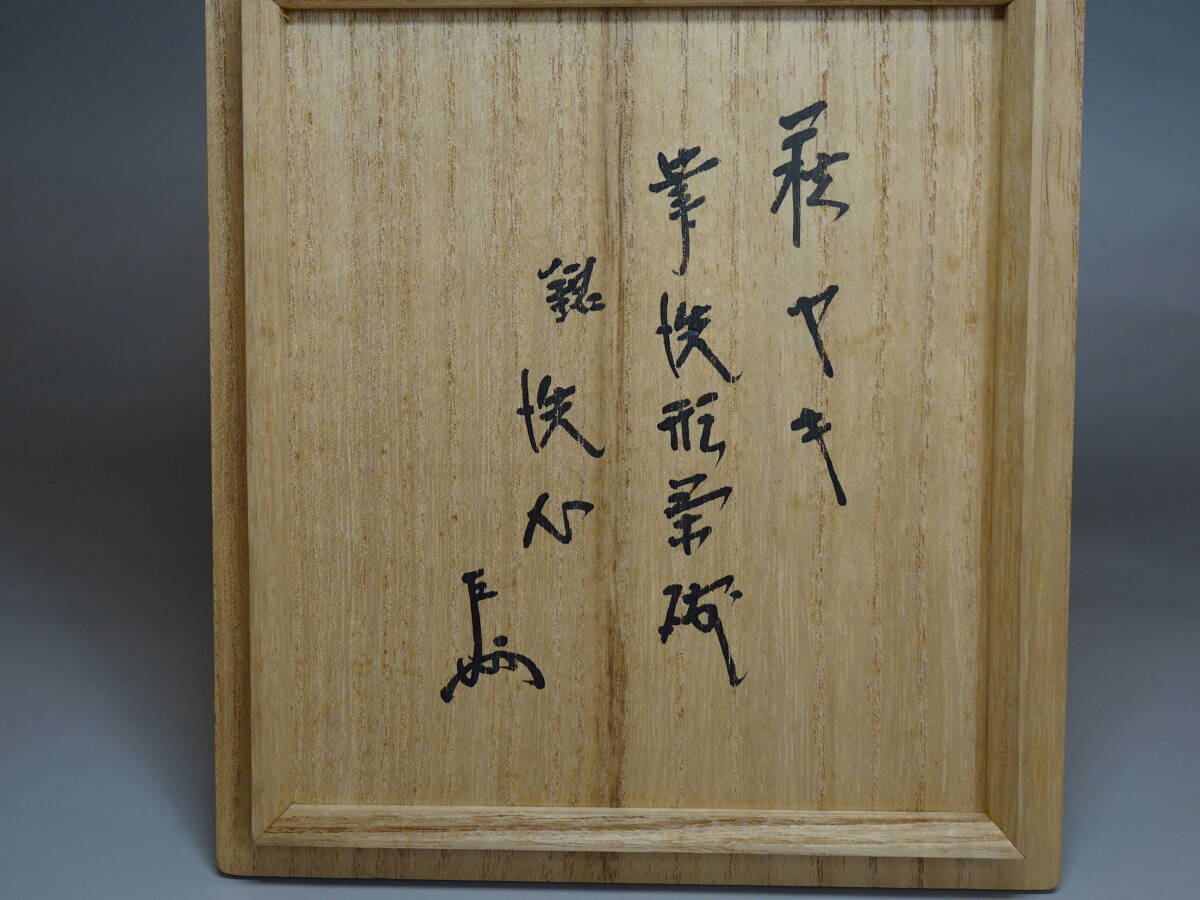 萩ヤキ
筆洗形茶碗
銘 洗心